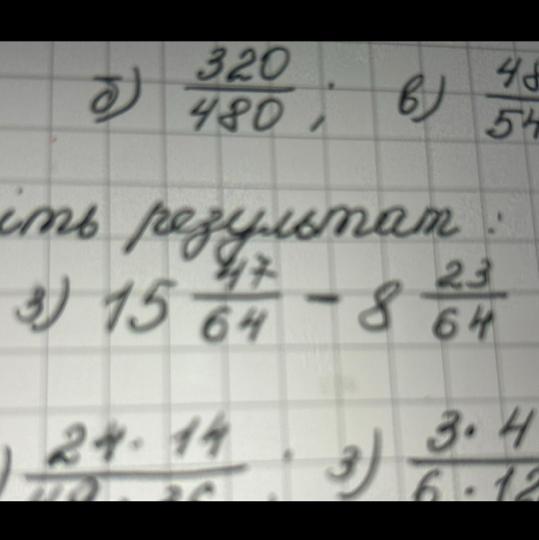 б) 320/480 ; в) 48/54
ить результат :
з) 15 47/64 - 8 23/64
) 24 · 14 / ; з) 3 · 4 / 6 · 12